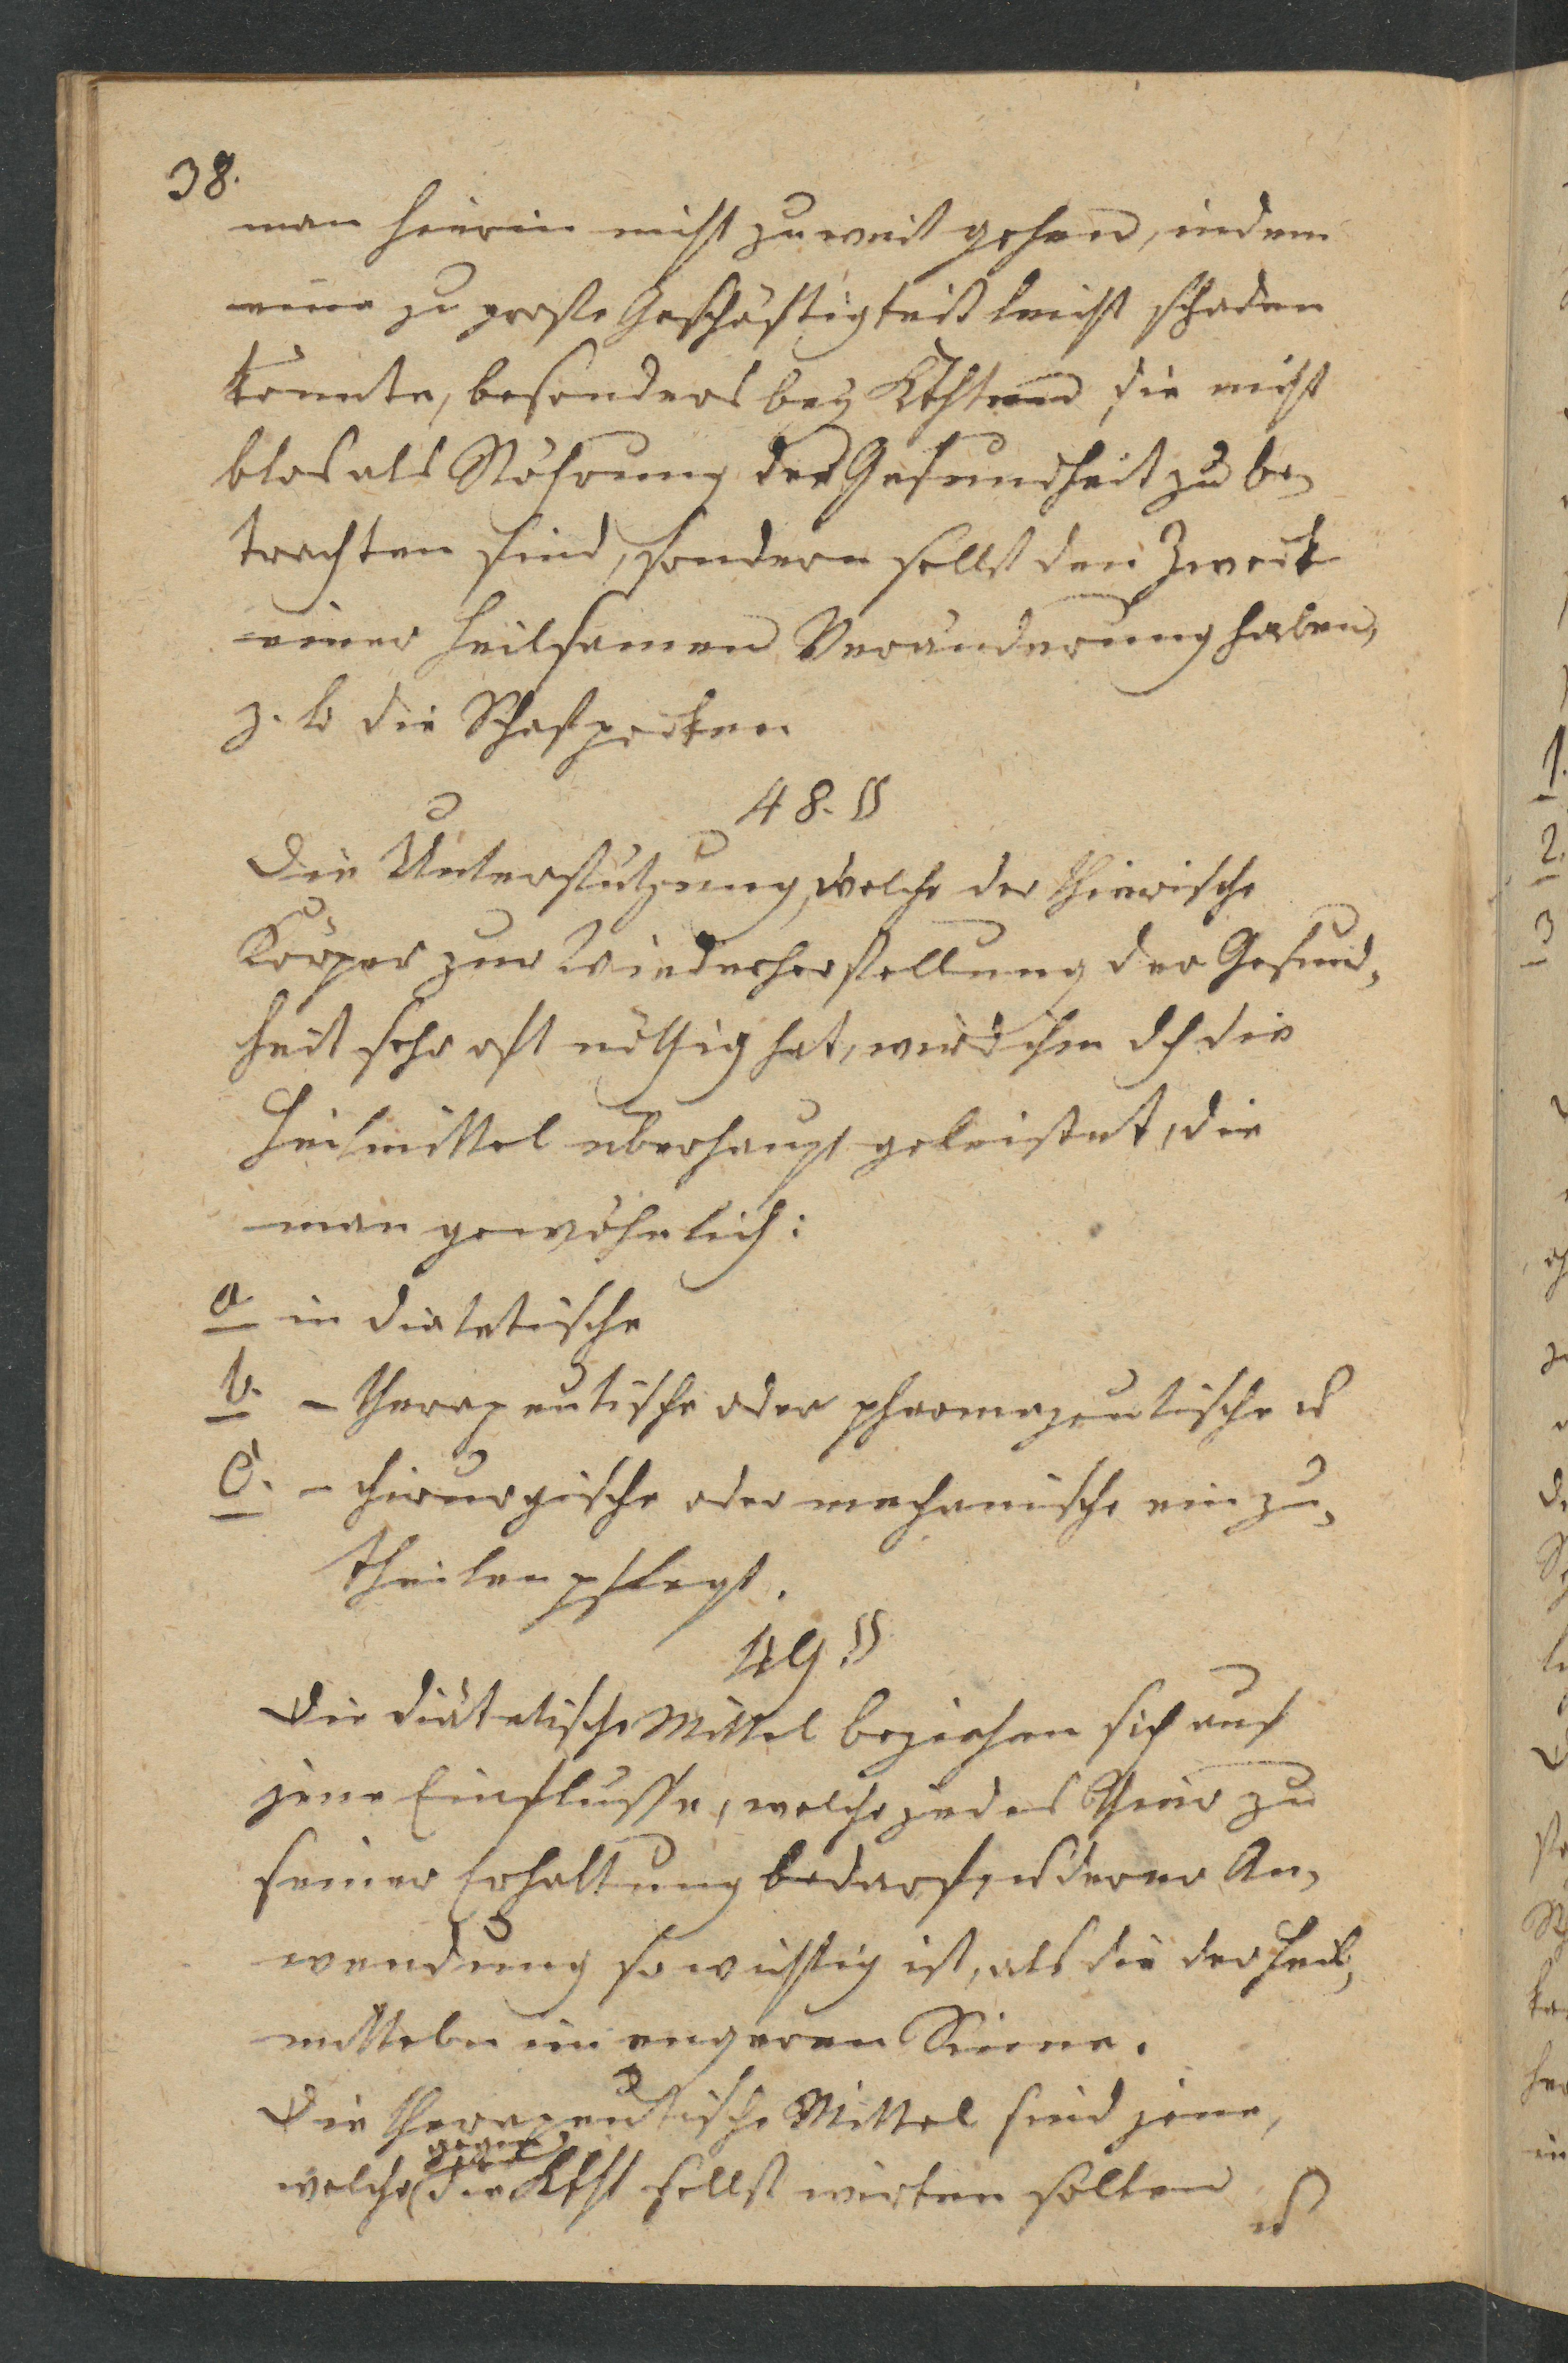 38.
man hierin nicht zu weit gehen, indem
eine zu große Geschäftigkeit leicht schaden
könnte, besonders bey Kkhten die nicht
blos als Stöhrung der Gesundheit zu be-
trachten sind, sondern selbst den Zweck
einer heilsamen Veränderung haben,
z. b die Schafpocken
48. §
Die Unterstützung, welche der thierische
Körper zur Wiederherstellung der Gesund-
heit sehr oft nöthig hat, wird ihm dch die
Heilmittel überhaupt geleistet, die
man gewöhnlich:
a in diatetische
b. – therapeutische oder pharmazeutische u
c. – chirurgische oder mechanische einzu-
theilen pflegt.
49 §
Die diätetische Mittel beziehen sich auf
jene Einflusse, welche jedes Thier zu
seiner Erhaltung bedarf, u deren An-
wendung so wichtig ist, als die der Heil-
mitteln im engeren Sinne.
Die therapeutische Mittel sind jene,
gegen
welche die Kkht selbst wirken sollen
u
1.
2.
3